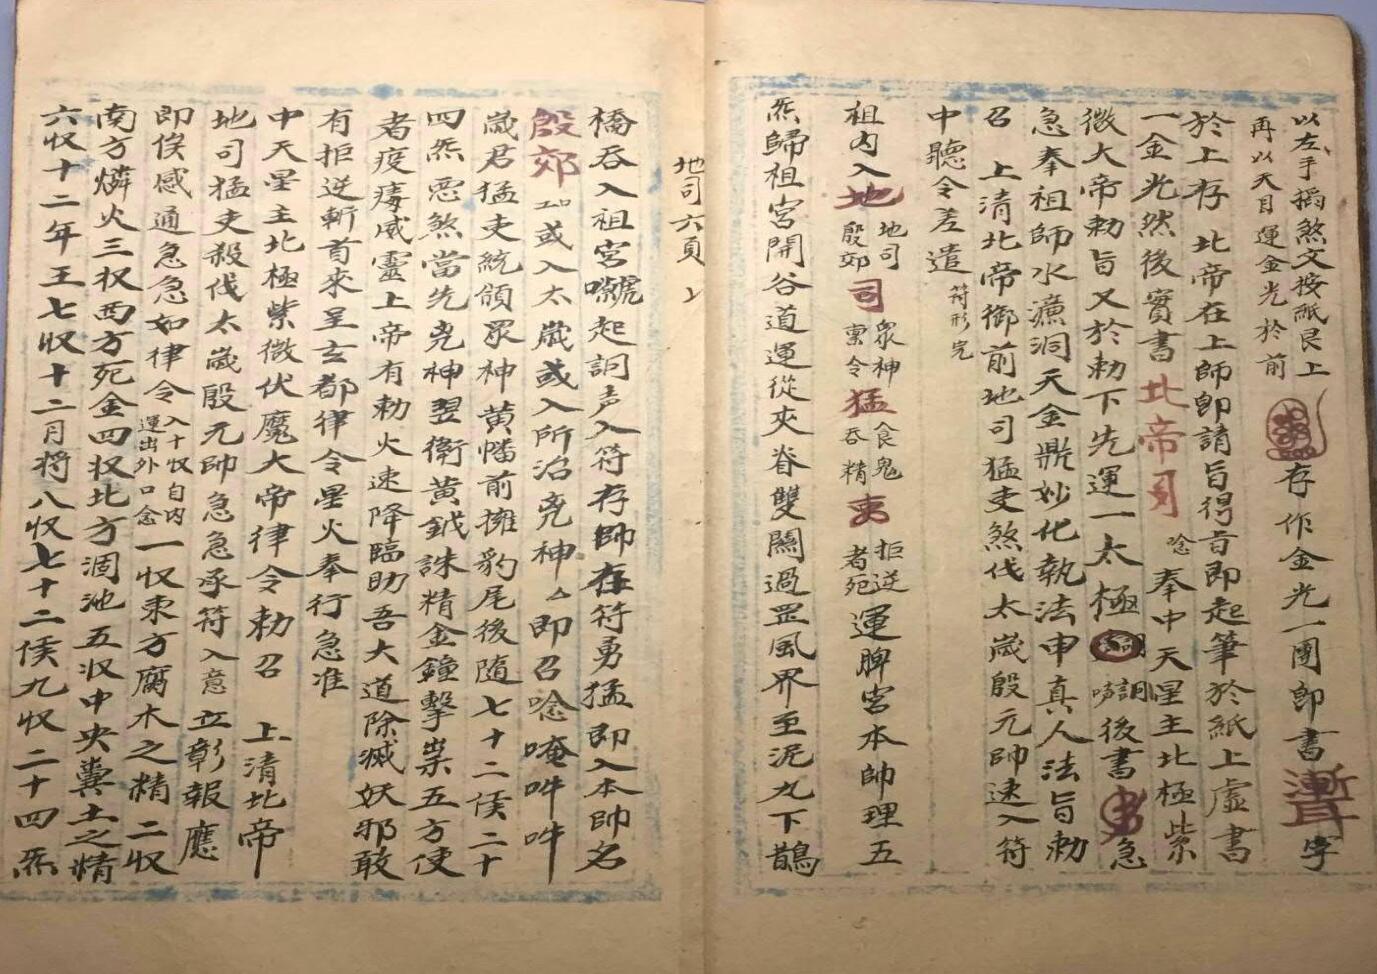 以左手掐煞文按紙艮上存作金光一團即書聻字
再以天目運金光於前
於上存 北帝在上師即請旨得旨即起筆於紙上虛書
一金光然後實書北帝司唸奉中天星主北極紫
微大帝勅旨又於勅下先運一太極後書急
急奉祖師水濂洞天金鼎妙化執法申真人法旨勅
召 上清北帝御前地司猛吏煞伐太歲殷元帥速入符
中聽令差遣 符形完
祖內入地地司殷郊司眾神稟令猛食鬼吞精吏拒逆者死運脾宮本帥理五
炁歸祖宮開谷道運從夾脊雙關過罡風界至泥丸下鵲
地司六頁
橋吞入祖宮起詞声入符存帥在符勇猛即入本帥名
殷郊或入太歲或入所治尧神厶即召唸唵吽吽
歲君猛吏統領眾神黃旛前擁豹尾後隨七十二候二十
四炁惡煞當先尧神翌衛黃鉞誅精金鐘擊祟五方使
者疫癘威靈上帝有勅火速降臨助吾大道除滅妖邪敢
有拒逆斬首來呈玄都律令星火奉行急准
中天星主北極紫微伏魔大帝律令勅召 上清北帝
地司猛吏殺伐太歲殷元帥急急承符入意立彰報應
即俟感通急急如律令入十収自內運出外口念一収東方腐木之精二収
南方燐火三収西方死金四収北方涸池五収中央糞土之精
六収十二年王七収十二月將八収七十二候九収二十四炁